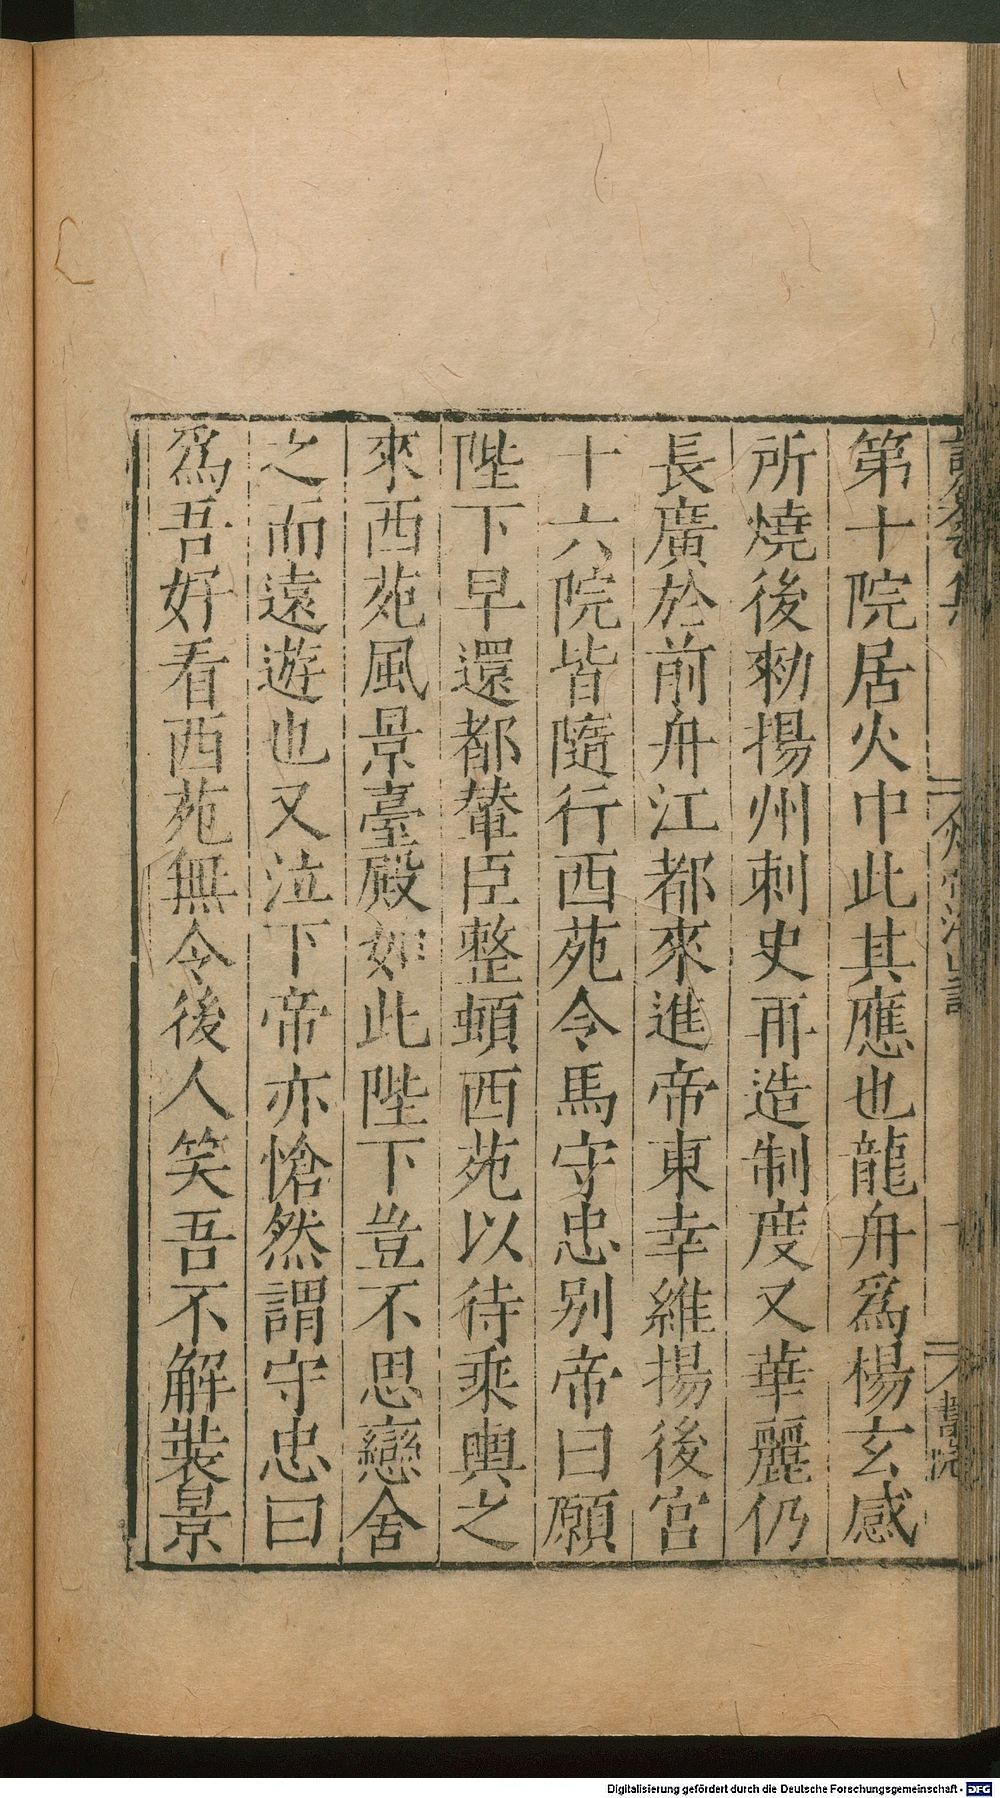 第十院居火中此其應也龍舟爲楊玄感
所燒後勑揚州刺史再造制度又華麗仍
長廣於前舟江都來進帝東幸維揚後宮
十六院皆隨行西苑令馬守忠別帝曰願
陛下早還都輦臣整頓西苑以待乘輿之
來西苑風景臺殿如此陛下豈不思戀舍
之而遠遊也又泣下帝亦愴然謂守忠曰
爲吾好看西苑無令後人笑吾不解裝景
Digitalisierung gefördert durch die Deutsche Forschungsgemeinschaft - DFG